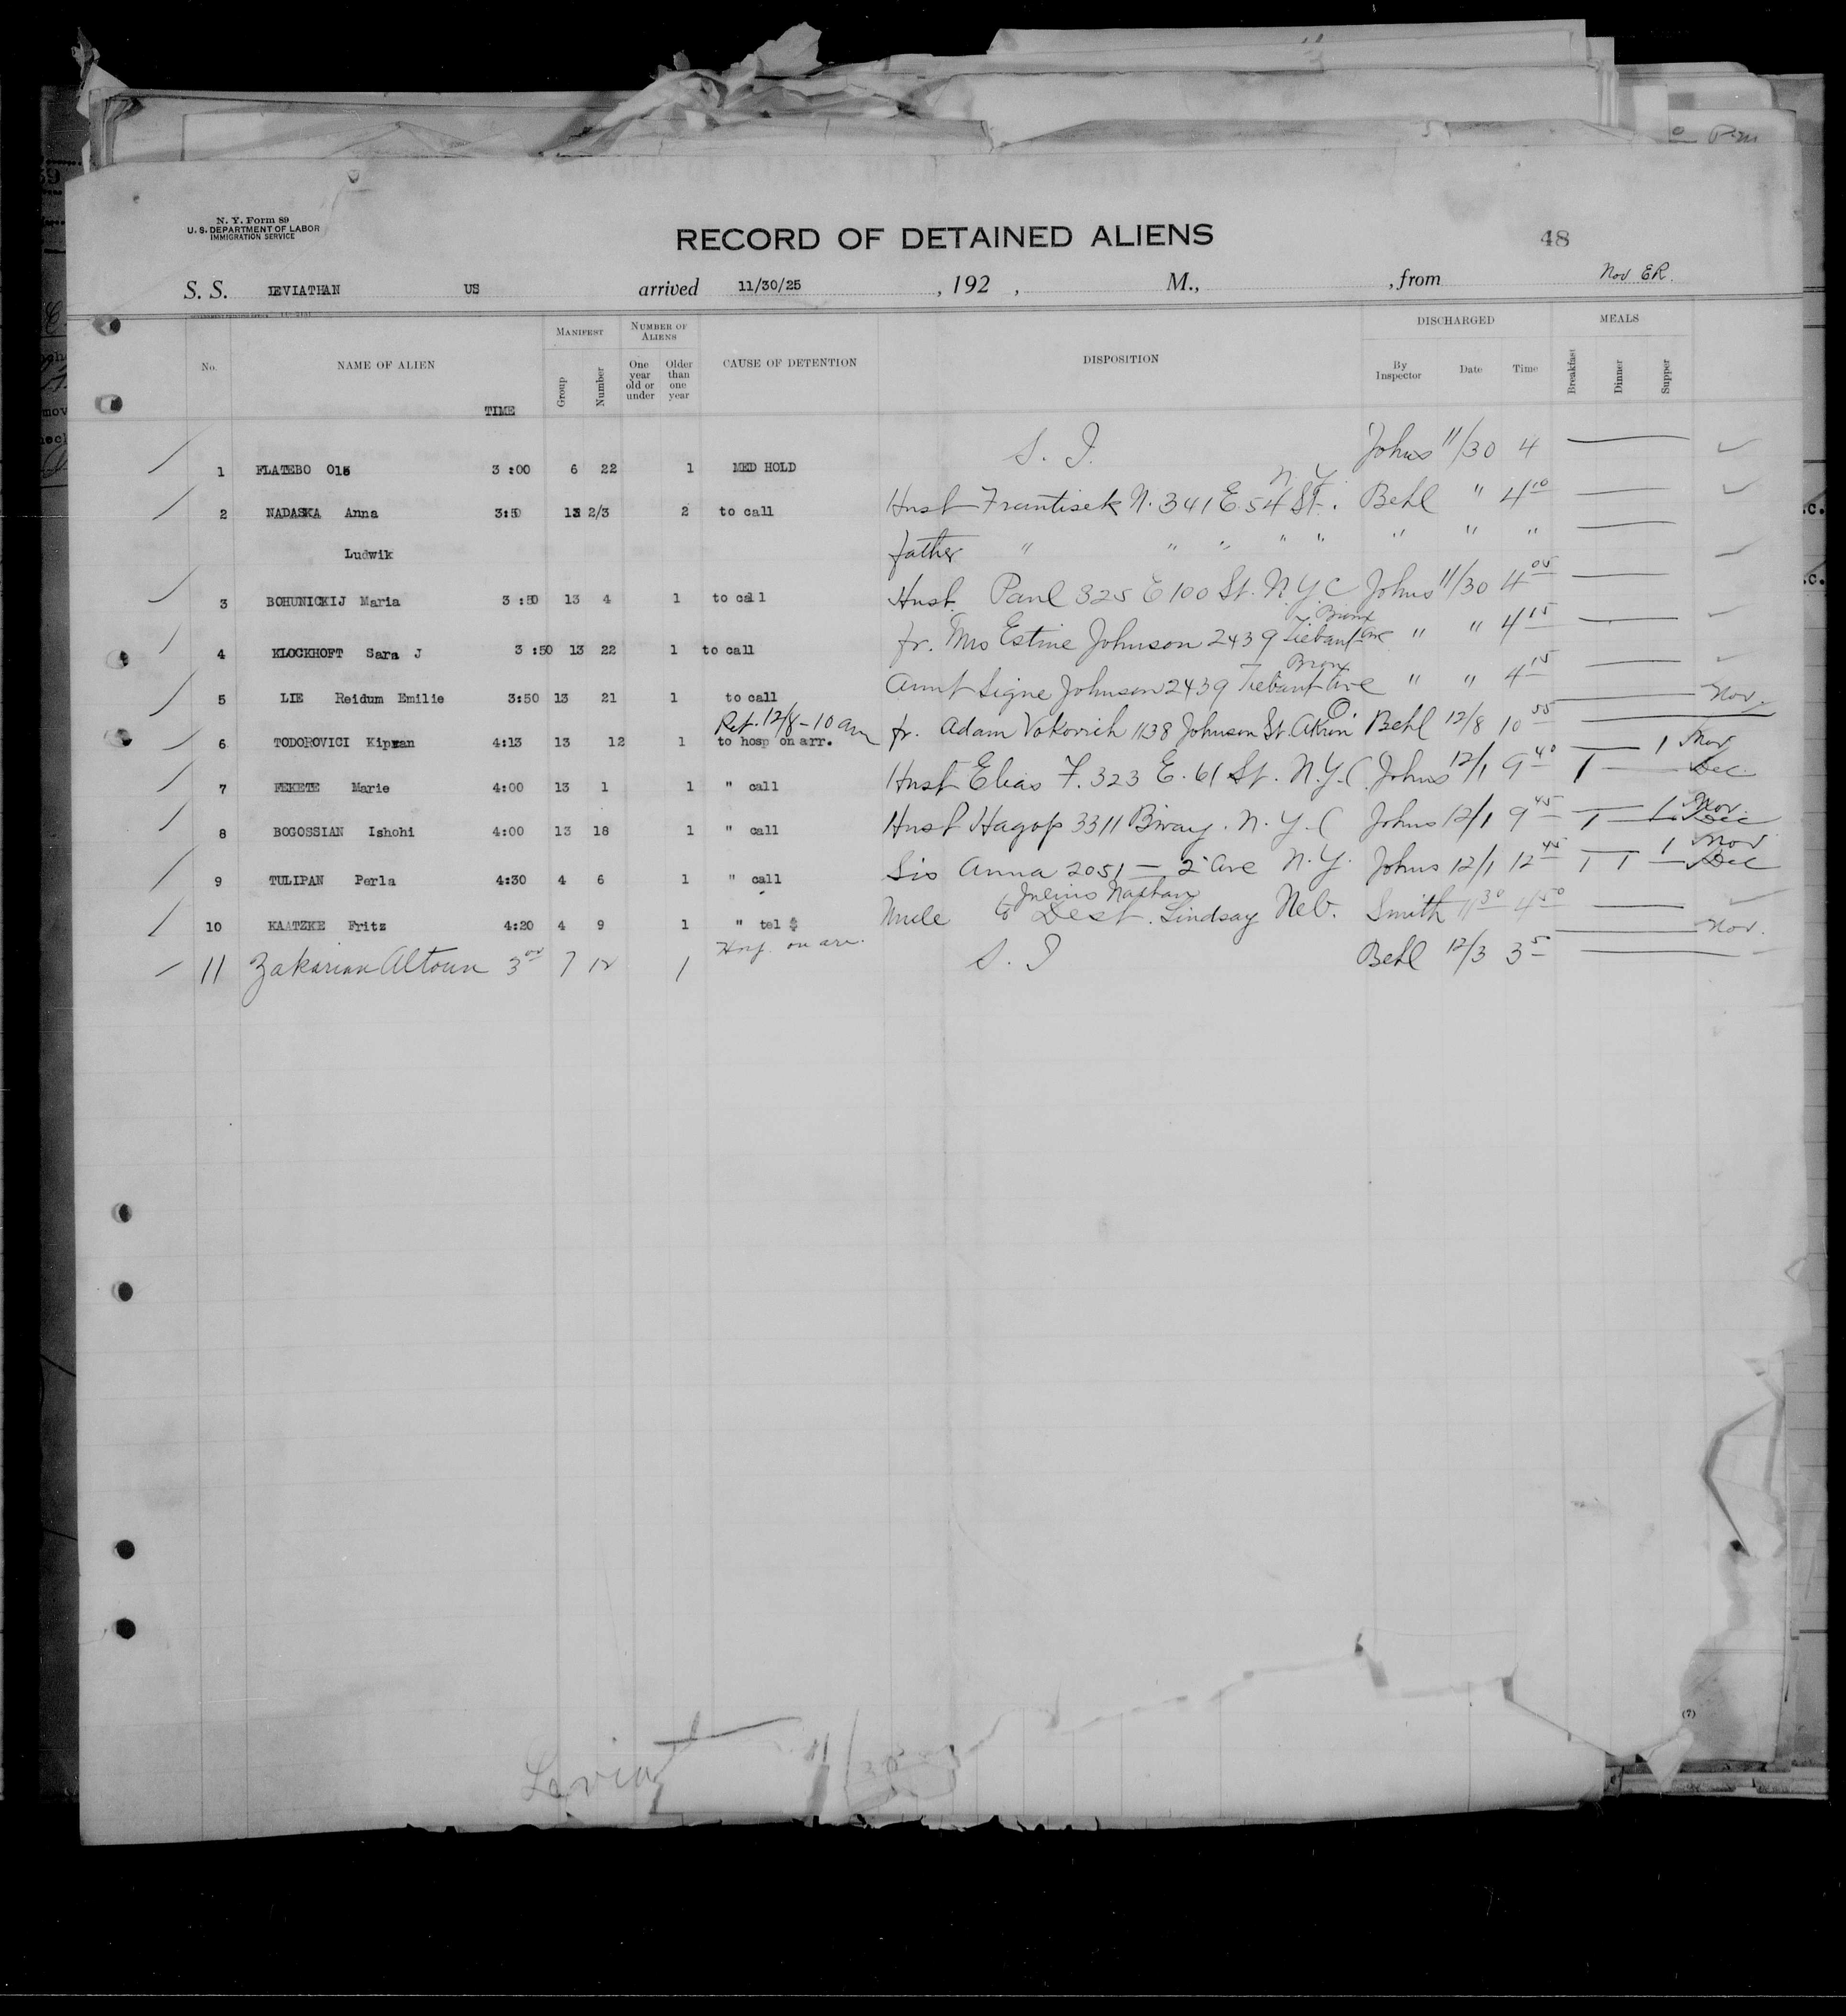 N. Y. Form 89
U. S. DEPARTMENT OF LABOR
IMMIGRATION SERVICE
RECORD OF DETAINED ALIENS
48
S. S. LEVIATHAN US arrived 11/30/25 , 192 , M., , from Nov ER.
No. NAME OF ALIEN TIME MANIFEST Group Number NUMBER OF ALIENS One year old or under Older than one year CAUSE OF DETENTION DISPOSITION DISCHARGED By Inspector Date Time MEALS Breakfast Dinner Supper
1 FLATEBO Ols 3:00 6 22 1 MED HOLD S. I. Johns 11/30 4
2 NADASKA Anna 3:50 13 2/3 2 to call Husb Frantisek N. 341 E. 54 St. N. Y. Behl " 4 10
Ludwik father " " " " " " " "
3 BOHUNICKIJ Maria 3:50 13 4 1 to call Husb. Paul 325 E 100 St. N.Y.C Johns 11/30 4 05
4 KLOCKHOFT Sara J 3:50 13 22 1 to call fr. Mrs Estine Johnson 2439 Tiebaut Ave Bronx " " 4 15
5 LIE Reidum Emilie 3:50 13 21 1 to call Aunt Signe Johnson 2439 Tiebaut Ave Bronx " " 4 15
6 TODOROVICI Kipman 4:13 13 12 1 Ret. 12/8 - 10 am to hosp on arr. fr. Adam Vokovich 1138 Johnson St. Akron O. Behl 12/8 10 55 Nov.
7 FEKETE Marie 4:00 13 1 1 " call Husb Elias F. 323 E. 61 St. N.Y.C. Johns 12/1 9 40 1 1 Nov Dec.
8 BOGOSSIAN Ishohi 4:00 13 18 1 " call Husb Hagop 3311 Bway. N.Y.C Johns 12/1 9 45 1 1 Nov. Dec
9 TULIPAN Perla 4:30 4 6 1 " call Sis Anna 2051 - 2 Ave N.Y. Johns 12/1 12 45 1 1 1 Nov Dec
10 KAATZKE Fritz 4:20 4 9 1 " tel $ Uncle Julius Nathan to Dest. Lindsay Neb. Smith 11 30 4 50
11 Zakarian Altoun 3 00 7 12 1 Hosp. on arr. S. I Behl 12/3 3 5 Nov.
Leviat 11/30
(7)